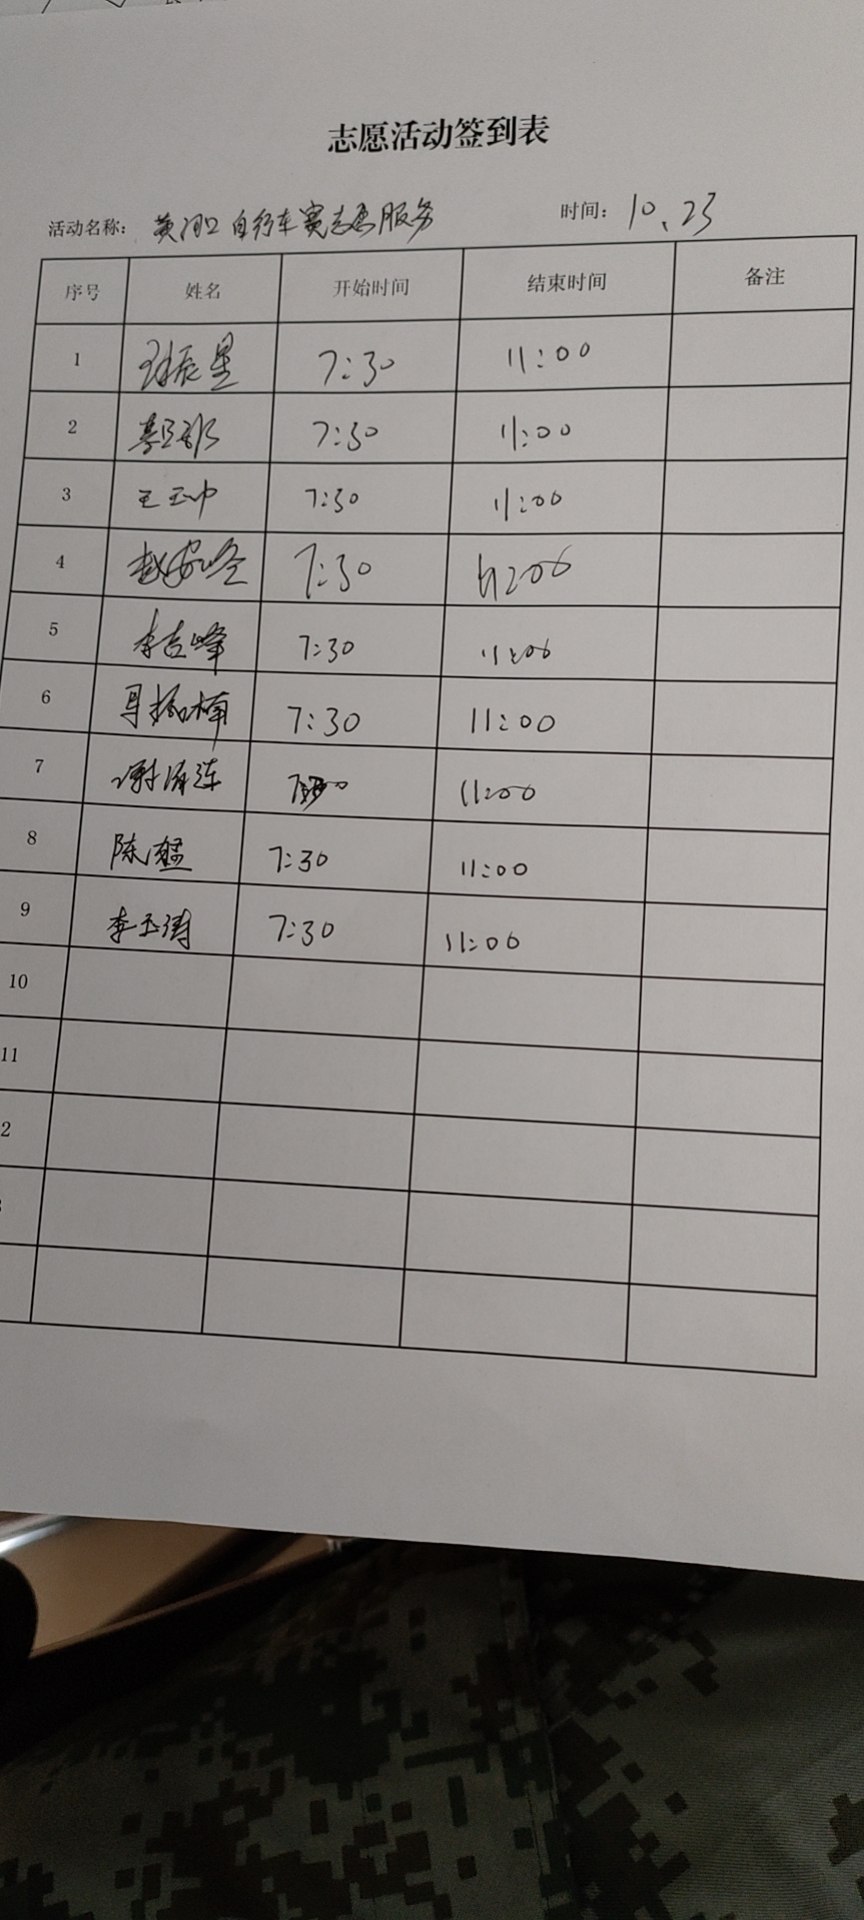 志愿活动签到表
活动名称: 黄河口自行车赛志愿服务 时间: 10.23
序号 姓名 开始时间 结束时间 备注
1 7:30 11:00
2 7:30 11:00
3 王玉中 7:30 11:00
4 7:30 11:00
5 李吉峰 7:30 11:00
6 马振楠 7:30 11:00
7 11:00
8 陈猛 7:30 11:00
9 李玉涛 7:30 11:00
10
11
2